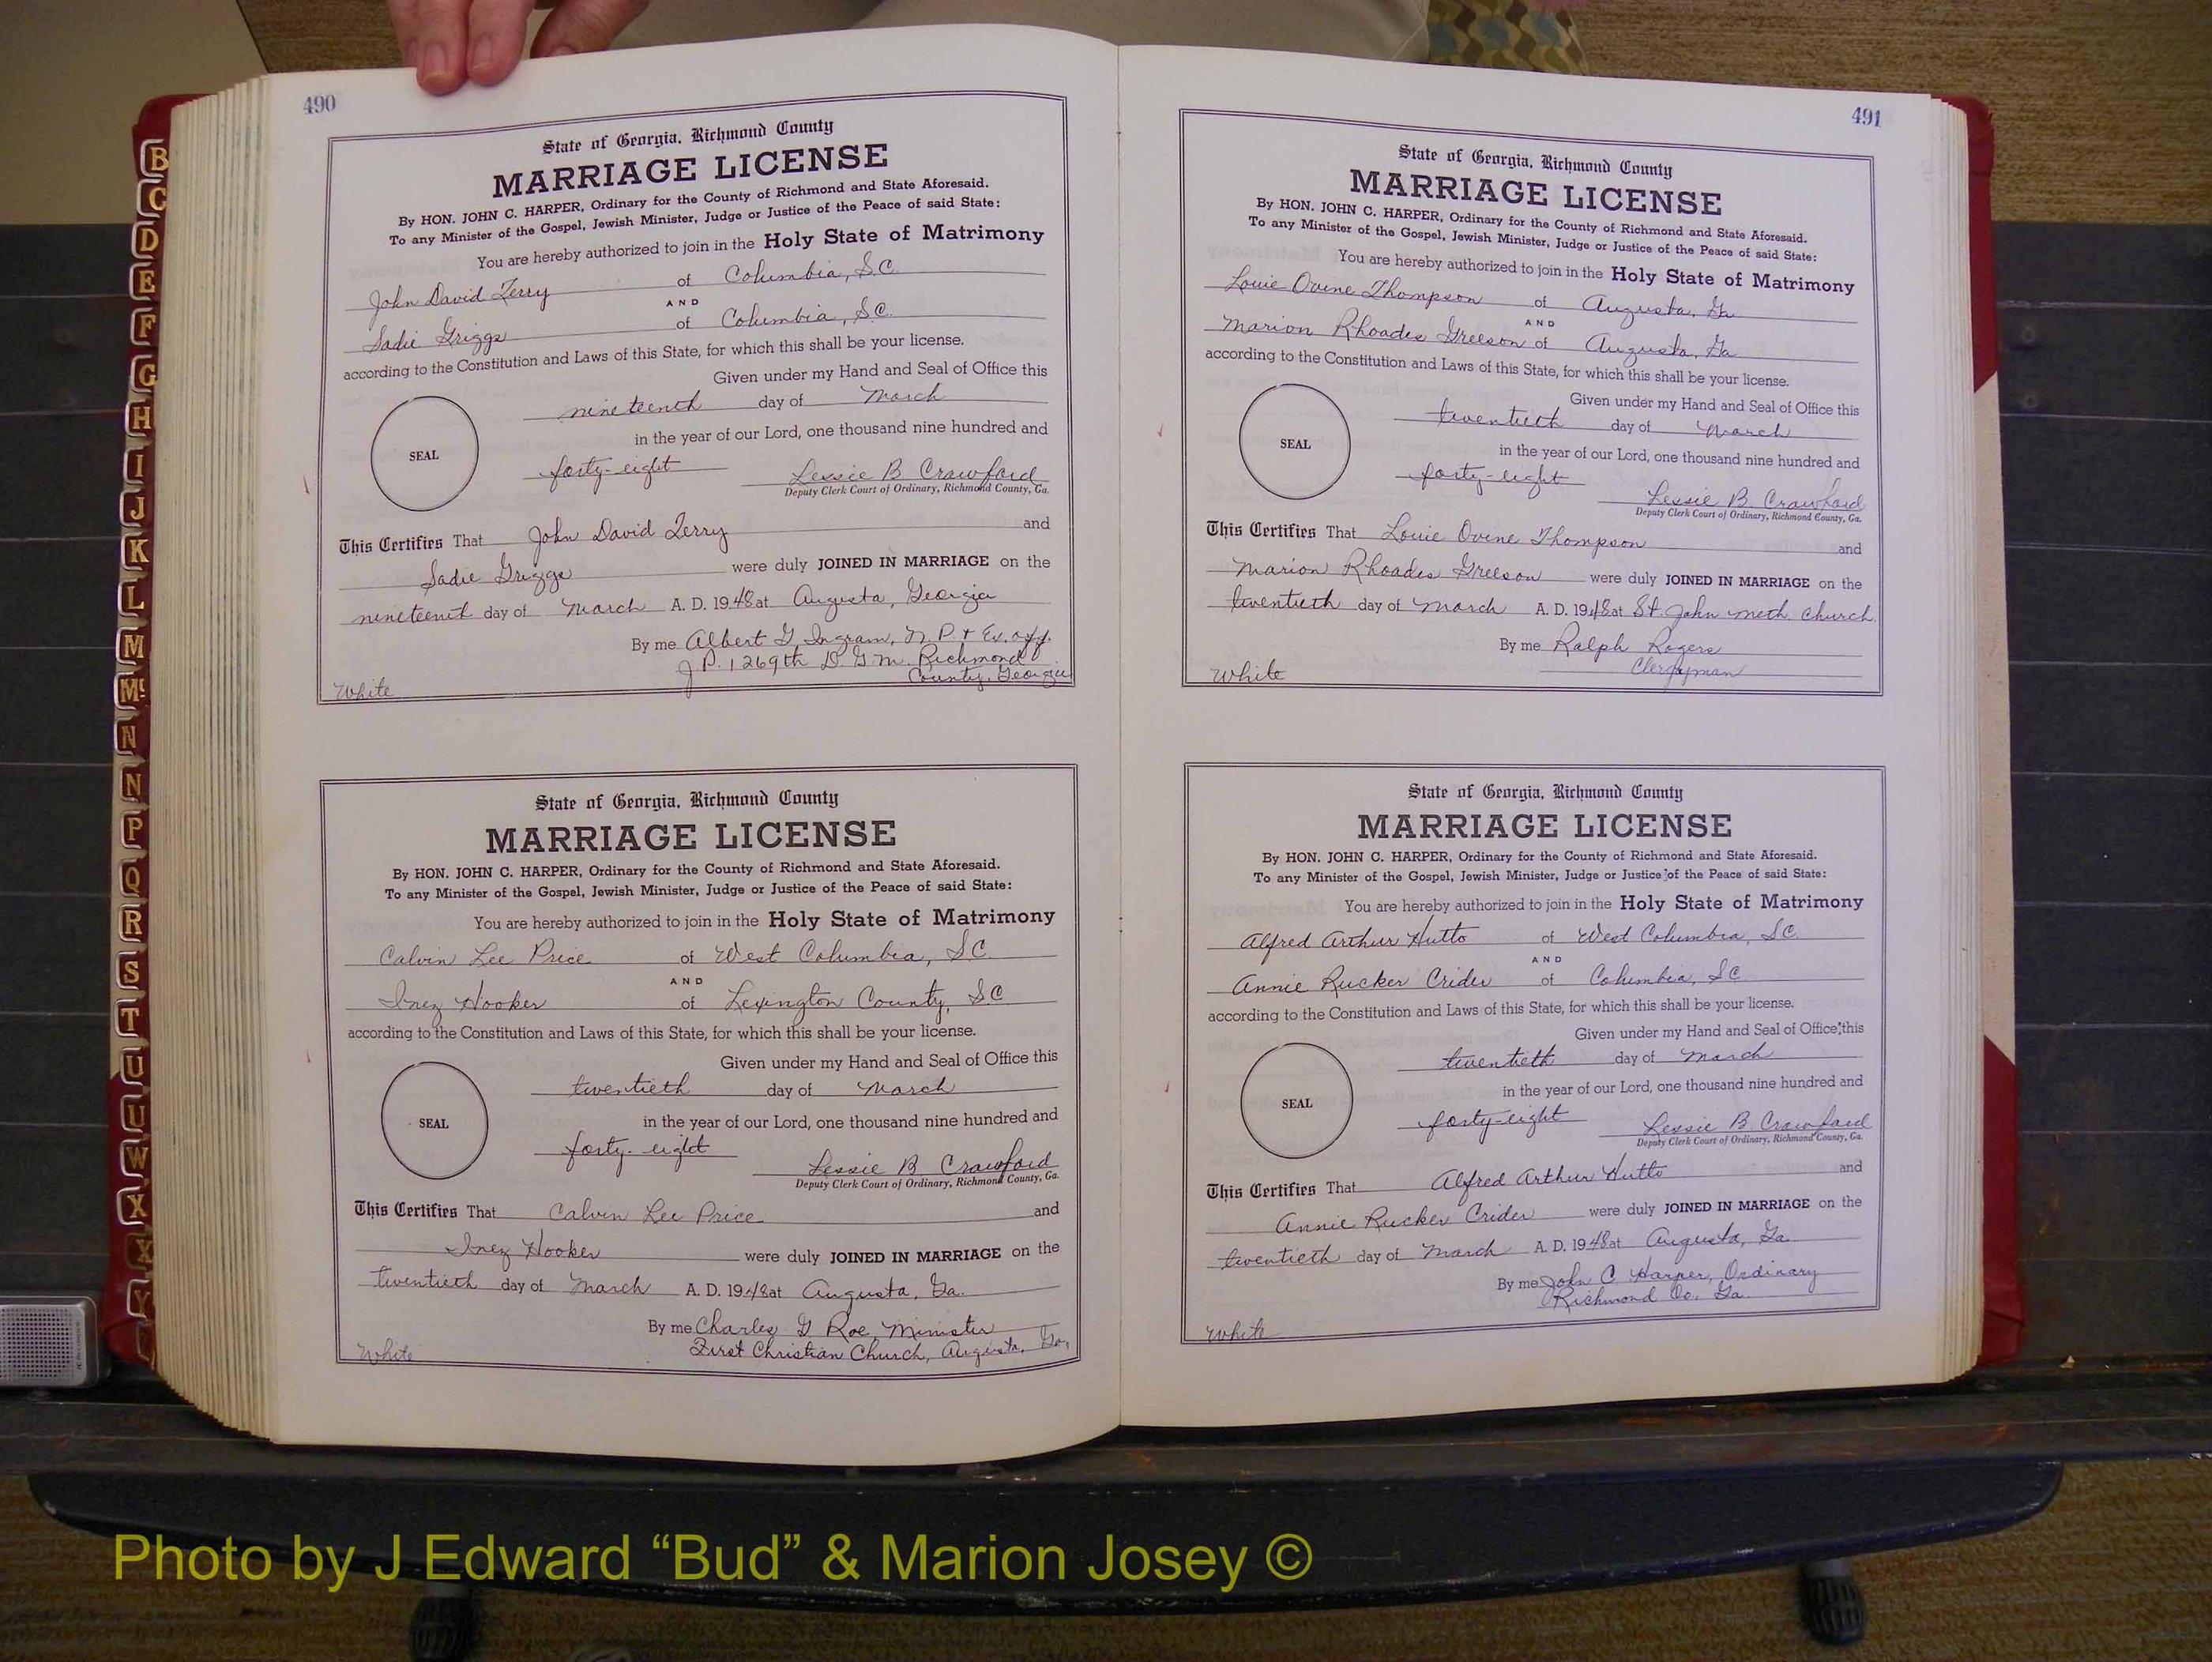 490
State of Georgia, Richmond County
MARRIAGE LICENSE
By HON. JOHN C. HARPER, Ordinary for the County of Richmond and State Aforesaid.
To any Minister of the Gospel, Jewish Minister, Judge or Justice of the Peace of said State:
You are hereby authorized to join in the Holy State of Matrimony
John David Terry of Columbia, S.C.
AND
Sadie Griggs of Columbia, S.C.
according to the Constitution and Laws of this State, for which this shall be your license.
Given under my Hand and Seal of Office this
nineteenth day of March
in the year of our Lord, one thousand nine hundred and
SEAL
forty-eight Lessie B Crawford
Deputy Clerk Court of Ordinary, Richmond County, Ga.
This Certifies That John David Terry and
Sadie Griggs were duly JOINED IN MARRIAGE on the
nineteenth day of March A. D. 1948 at Augusta, Georgia
By me Albert G Ingram, N. P. & Ex. off.
J P. 1269th D. G. M. Richmond
County, Georgia
White
State of Georgia, Richmond County
MARRIAGE LICENSE
By HON. JOHN C. HARPER, Ordinary for the County of Richmond and State Aforesaid.
To any Minister of the Gospel, Jewish Minister, Judge or Justice of the Peace of said State:
You are hereby authorized to join in the Holy State of Matrimony
Calvin Lee Price of West Columbia, S C
AND
Inez Hooker of Lexington County, S C
according to the Constitution and Laws of this State, for which this shall be your license.
Given under my Hand and Seal of Office this
twentieth day of March
SEAL
in the year of our Lord, one thousand nine hundred and
forty-eight Lessie B Crawford
Deputy Clerk Court of Ordinary, Richmond County, Ga.
This Certifies That Calvin Lee Price and
Inez Hooker were duly JOINED IN MARRIAGE on the
twentieth day of March A. D. 1948 at Augusta, Ga.
By me Charles G Roe, Minister
First Christian Church, Augusta, Ga.
White
491
State of Georgia, Richmond County
MARRIAGE LICENSE
By HON. JOHN C. HARPER, Ordinary for the County of Richmond and State Aforesaid.
To any Minister of the Gospel, Jewish Minister, Judge or Justice of the Peace of said State:
You are hereby authorized to join in the Holy State of Matrimony
Louie Ovine Thompson of Augusta, Ga
AND
Marion Rhoades Greeson of Augusta, Ga
according to the Constitution and Laws of this State, for which this shall be your license.
Given under my Hand and Seal of Office this
twentieth day of March
SEAL
in the year of our Lord, one thousand nine hundred and
forty-eight Lessie B. Crawford
Deputy Clerk Court of Ordinary, Richmond County, Ga.
This Certifies That Louie Ovine Thompson and
Marion Rhoades Greeson were duly JOINED IN MARRIAGE on the
twentieth day of March A. D. 1948 at St. John Meth. Church
By me Ralph Rogers
Clergyman
White
State of Georgia, Richmond County
MARRIAGE LICENSE
By HON. JOHN C. HARPER, Ordinary for the County of Richmond and State Aforesaid.
To any Minister of the Gospel, Jewish Minister, Judge or Justice of the Peace of said State:
You are hereby authorized to join in the Holy State of Matrimony
Alfred Arthur Hutto of West Columbia, S C.
AND
Annie Rucker Crider of Columbia, S C
according to the Constitution and Laws of this State, for which this shall be your license.
Given under my Hand and Seal of Office this
twentieth day of March
in the year of our Lord, one thousand nine hundred and
SEAL
forty-eight Lessie B. Crawford
Deputy Clerk Court of Ordinary, Richmond County, Ga.
This Certifies That Alfred Arthur Hutto and
Annie Rucker Crider were duly JOINED IN MARRIAGE on the
twentieth day of March A. D. 1948 at Augusta, Ga.
By me John C. Harper, Ordinary
Richmond Co., Ga.
White
B
C
D
E
F
G
H
I
J
K
L
M
Mc
N
N
P
Q
R
S
T
U
U
W
X
X
Y
Photo by J Edward “Bud” & Marion Josey ©